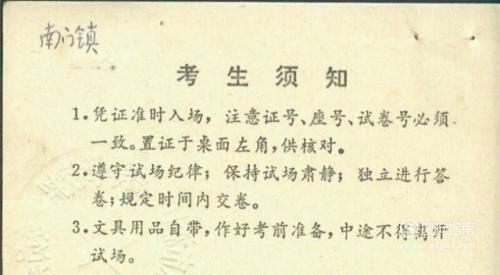 南门镇
考生须知
1.凭证准时入场，注意证号、座号、试卷号必须
一致。置证于桌面左角，供核对。
2.遵守试场纪律；保持试场肃静；独立进行答
卷；规定时间内交卷。
3.文具用品自带，作好考前准备，中途不得离开
试场。